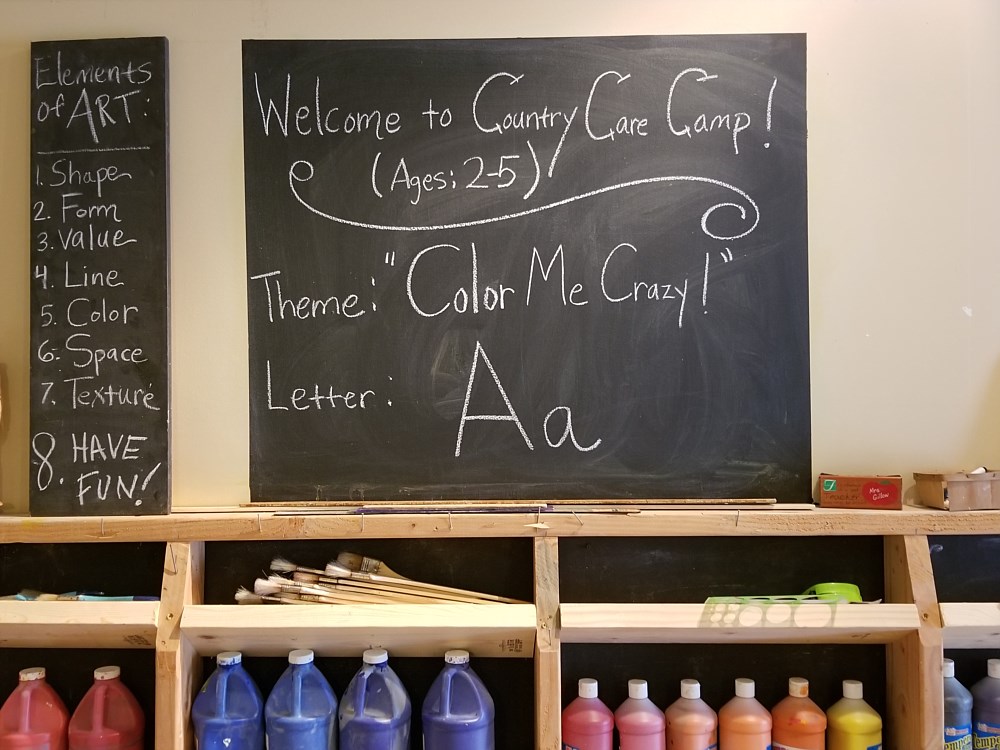 Elements
of ART:
1. Shape
2. Form
3. Value
4. Line
5. Color
6. Space
7. Texture
8. HAVE
FUN!
Welcome to Country Care Camp!
(Ages: 2-5)
Theme: "Color Me Crazy!"
Letter: Aa